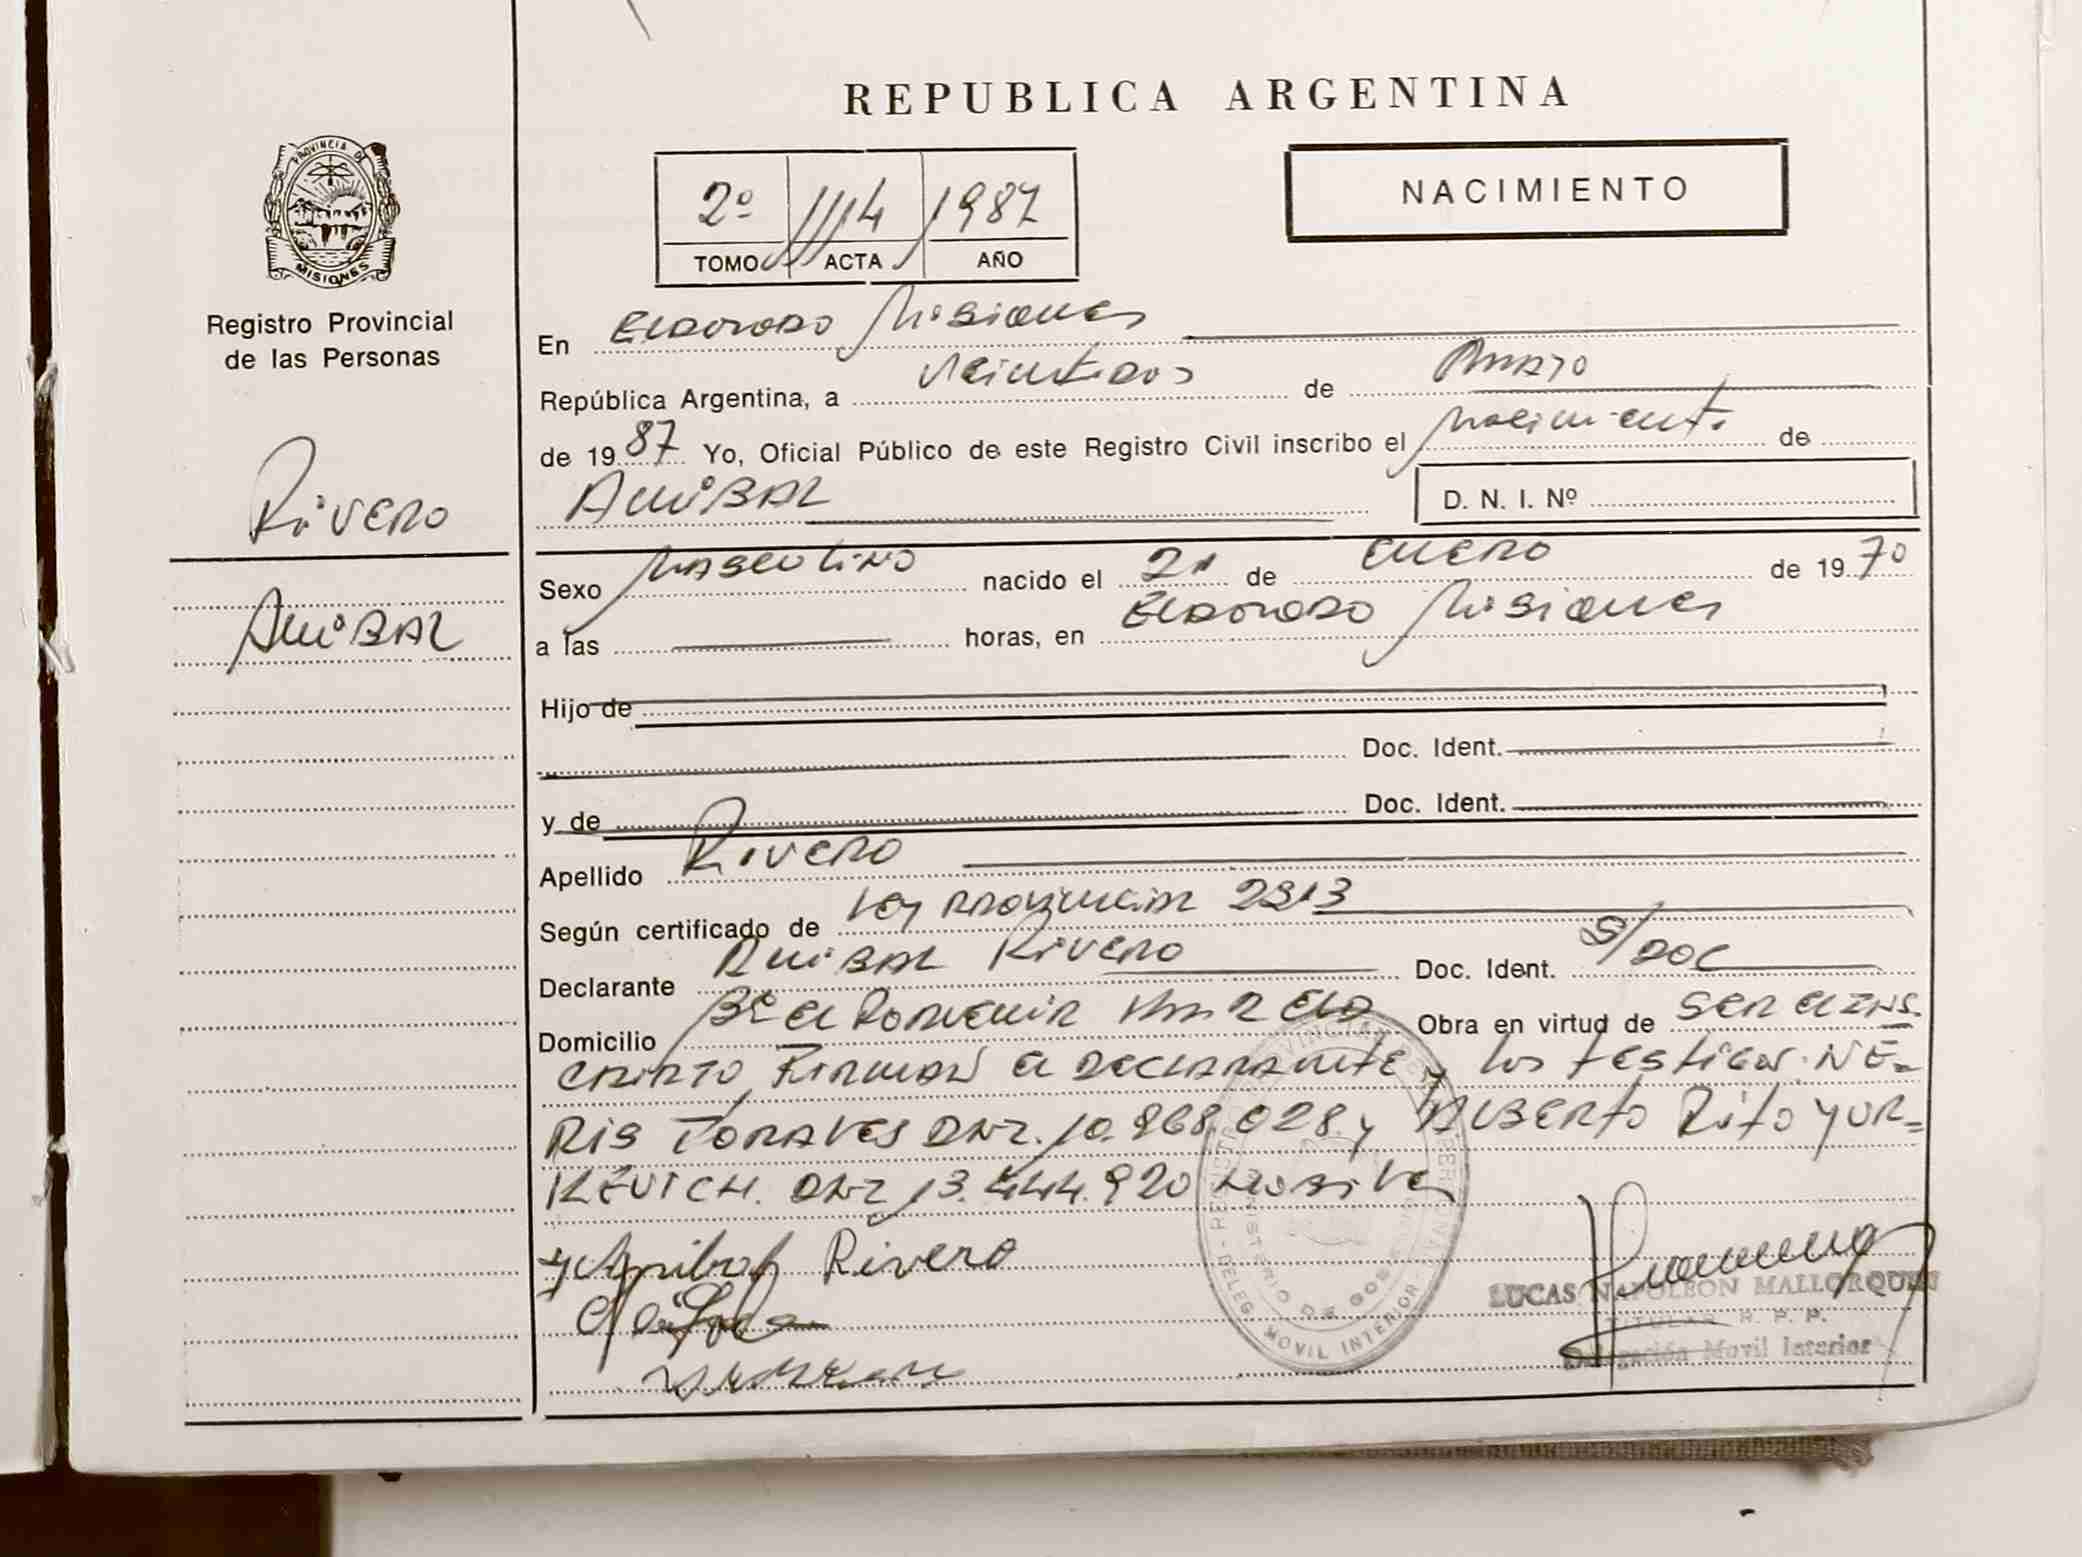 REPUBLICA ARGENTINA
NACIMIENTO
2º 1114 1987
TOMO ACTA AÑO
PROVINCIA DE
MISIONES
Registro Provincial
de las Personas
Rivero
Anibal
En Eldorado Misiones
República Argentina, a veintidos de Mayo
de 1987 Yo, Oficial Público de este Registro Civil inscribo el Nacimiento de
Anibal
D. N. I. Nº
Sexo Masculino nacido el 21 de enero de 1970
a las horas, en Eldorado Misiones
Hijo de
Doc. Ident.
y de Doc. Ident.
Apellido Rivero
Según certificado de Ley Provincial 2313
Declarante Anibal Rivero Doc. Ident. S/DOC
Domicilio Bº el Porvenir Obra en virtud de ser el ins-
cripto Firman el declarante y los testigos: NE-
RIS DNI. 10.868.028 y Alberto Rito YUR-
KEVICH. DNI 13.444.920
Anibal Rivero
LUCAS NAPOLEON MALLORQUIN
TITULAR R. P. P.
Delegación Movil Interior
MINISTERIO DE GOB
DELEG. MOVIL INTERIOR